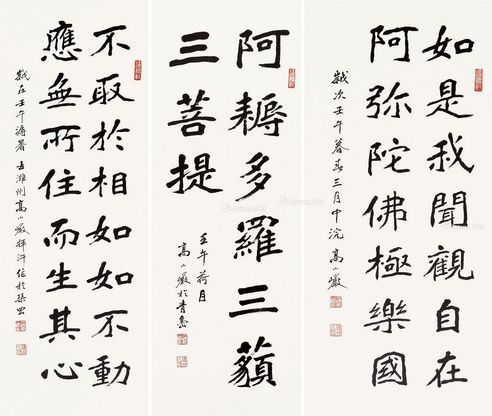 如是我聞觀自在
阿弥陀佛極樂國
歲次壬午暮春三月中浣高小巖
阿耨多羅三藐
三菩提
壬午荷月
高小巖於青島
不取於相如如不動
應無所住而生其心
歲在壬午溽暑古濰州高小巖揮汗